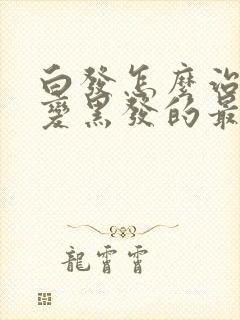 白發怎麼治
變黑發的最
龍霄霄